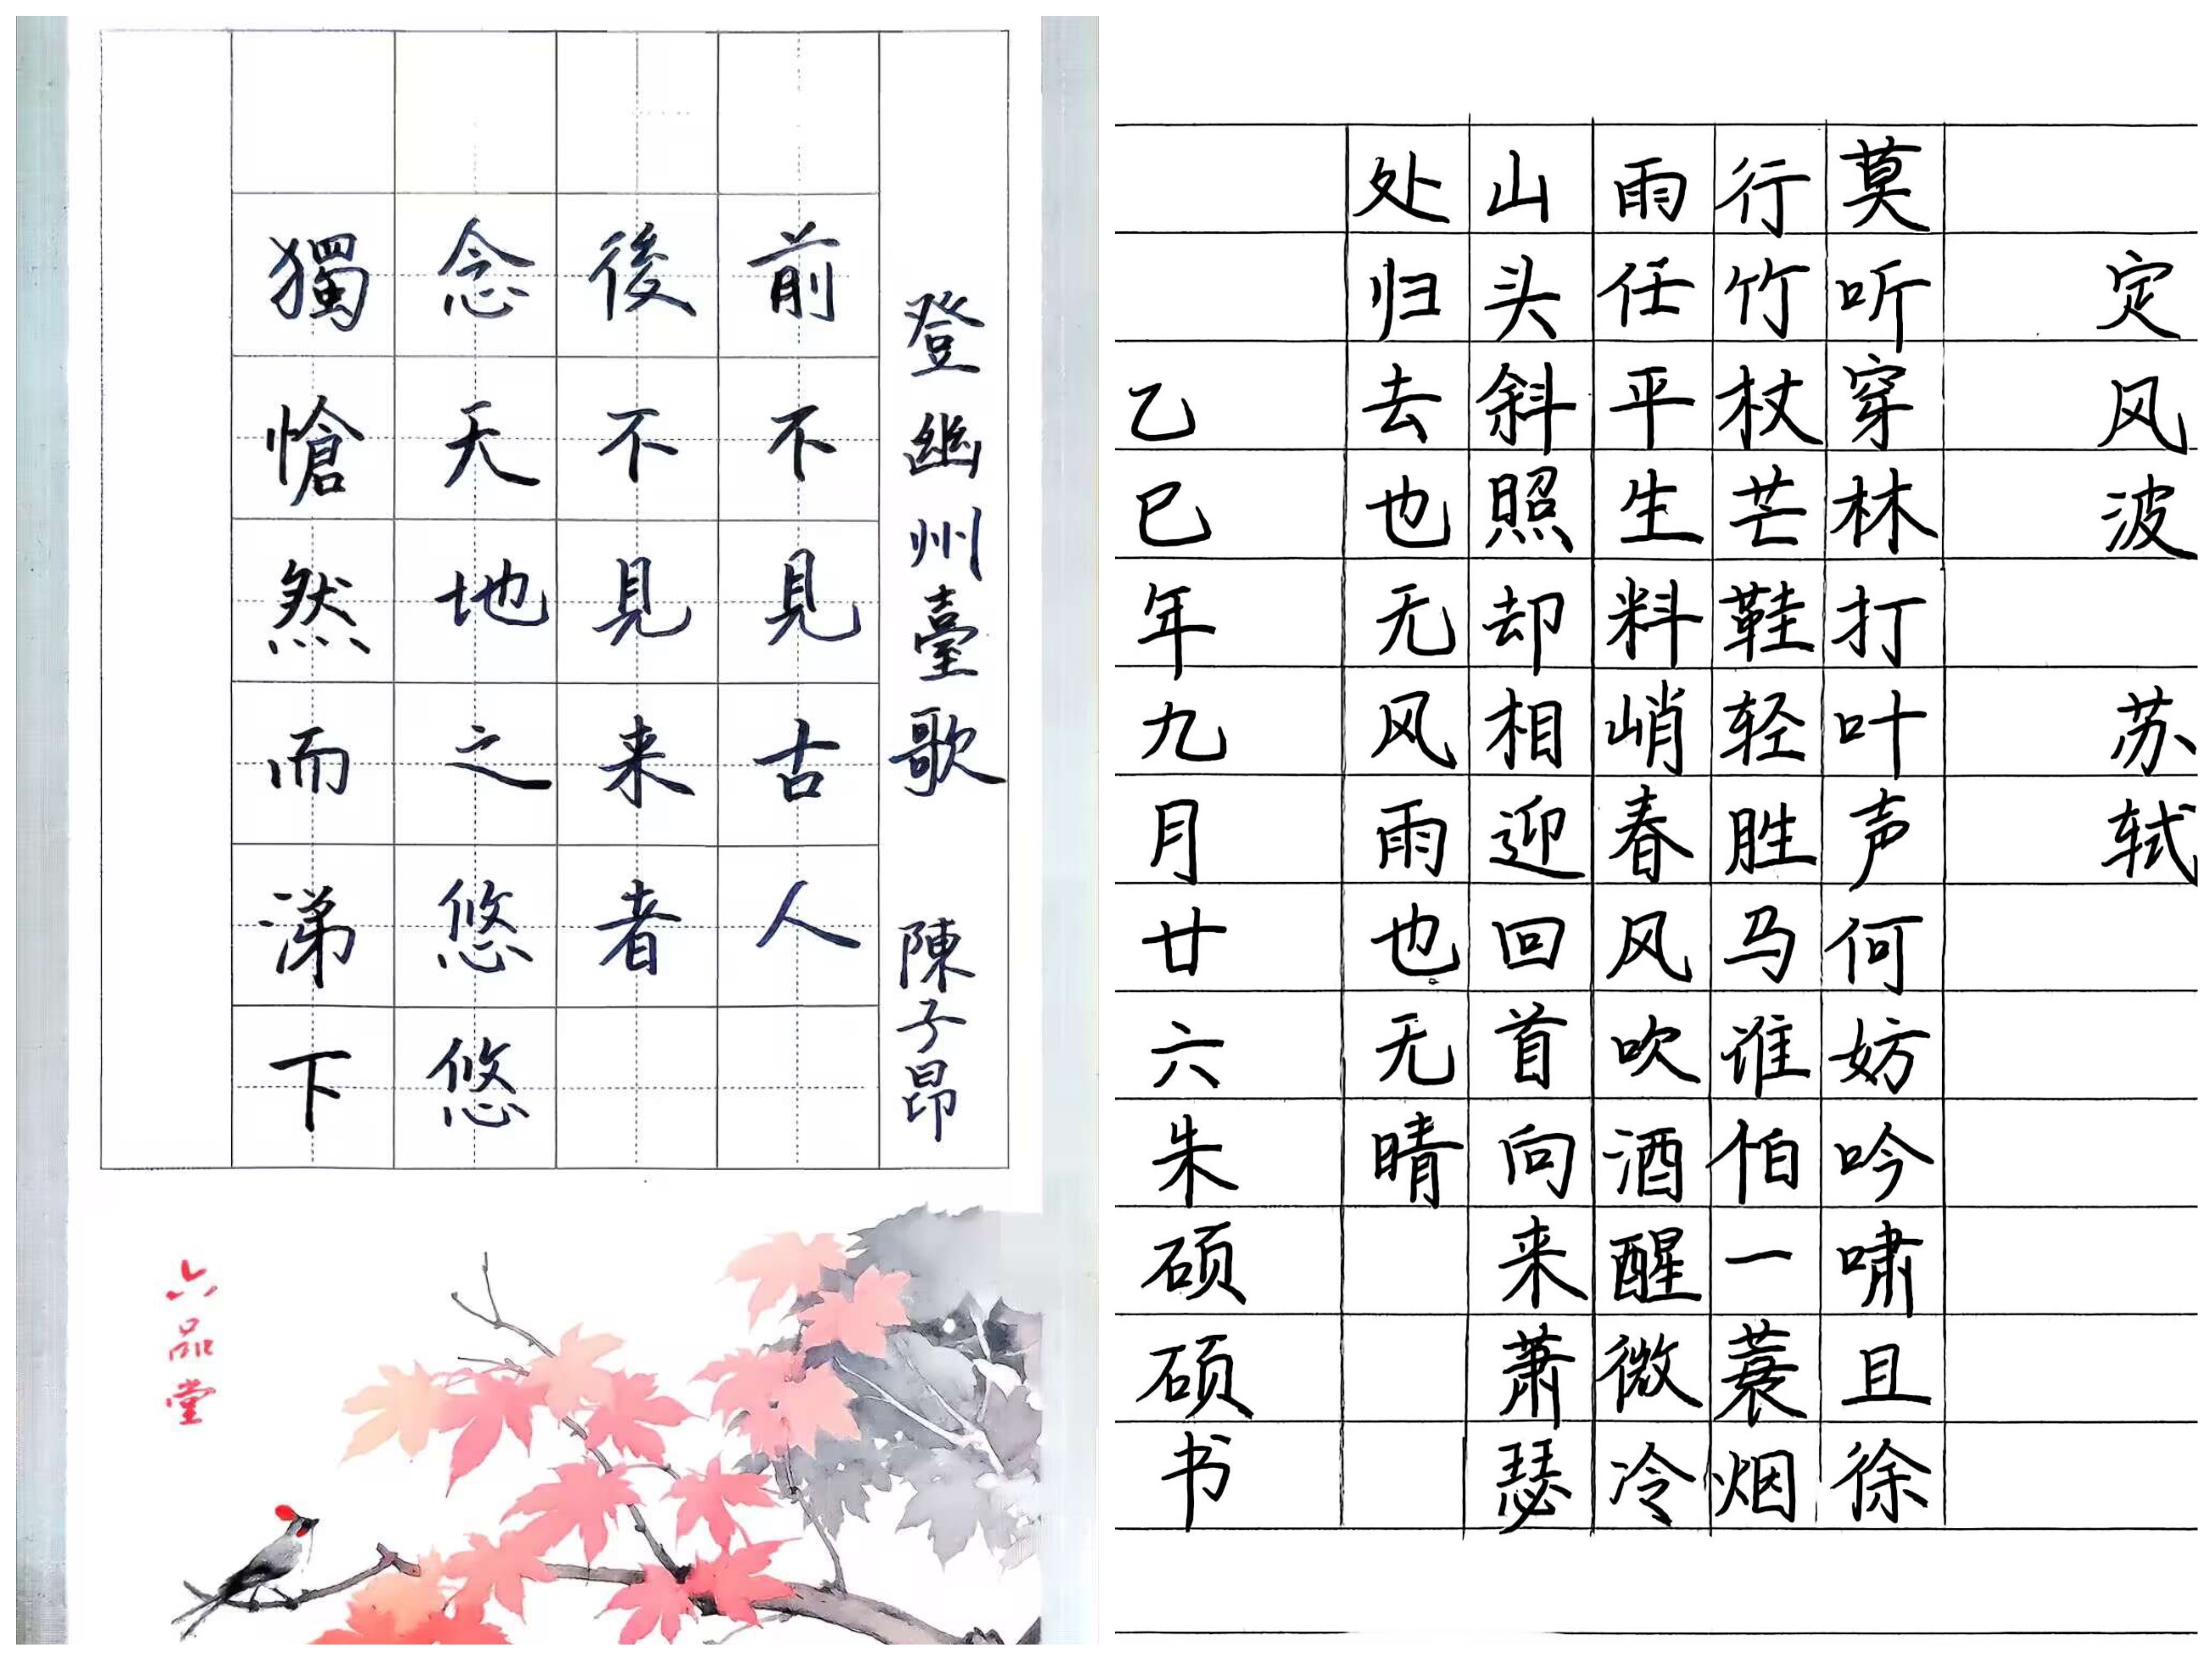 登幽州臺歌 陳子昂
前不見古人
後不見来者
念天地之悠悠
獨愴然而涕下
六品堂
定风波 苏轼
莫听穿林打叶声何妨吟啸且徐
行竹杖芒鞋轻胜马谁怕一蓑烟
雨任平生料峭春风吹酒醒微冷
山头斜照却相迎回首向来萧瑟
处归去也无风雨也无晴
乙巳年九月廿六朱硕硕书